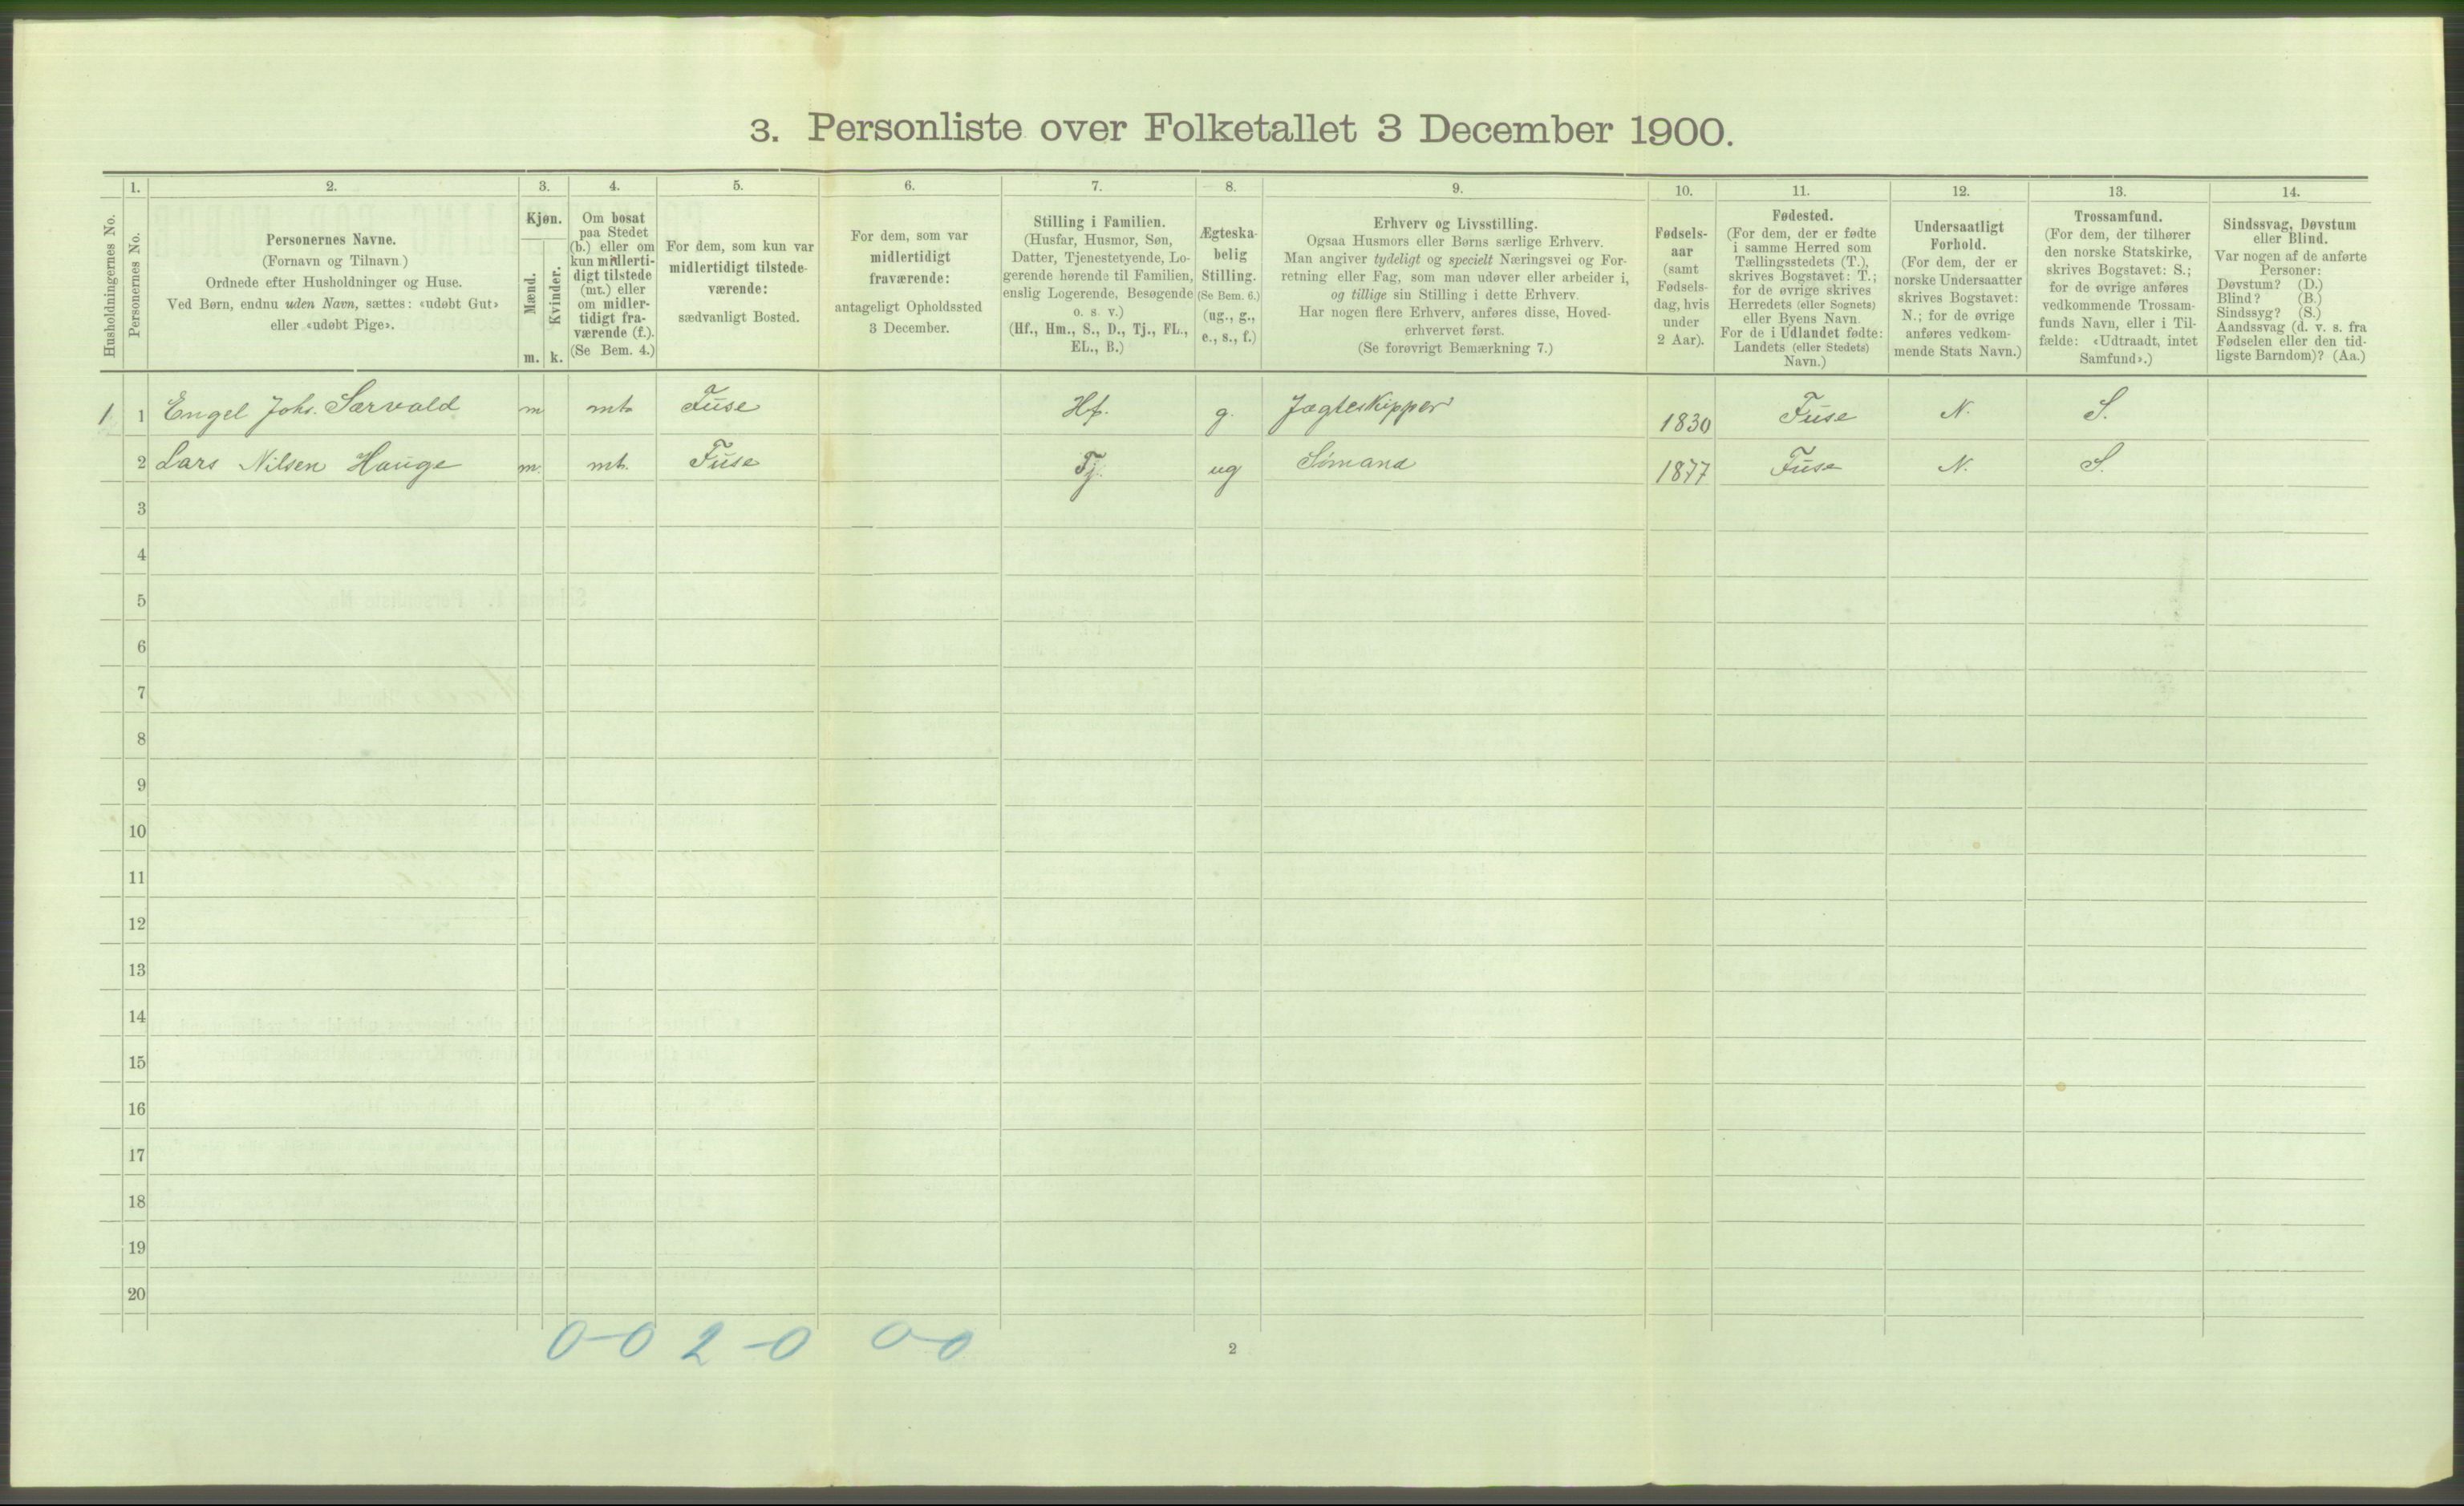 3. Personliste over Folketallet 3 December 1900.
1. 2. 3. 4. 5. 6. 7. 8. 9. 10. 11. 12. 13. 14.
Husholdningernes No.
Personernes No.
Personernes Navne.
(Fornavn og Tilnavn.)
Ordnede efter Husholdninger og Huse.
Ved Børn, endnu uden Navn, sættes: «udøbt Gut»
eller «udøbt Pige».
Kjøn.
Mænd.
Kvinder.
m. k.
Om bosat
paa Stedet
(b.) eller om
kun midlerti-
digt tilstede
(mt.) eller
om midler-
tidigt fra-
værende (f.).
(Se Bem. 4.)
For dem, som kun var
midlertidigt tilstede-
værende:
sædvanligt Bosted.
For dem, som var
midlertidigt
fraværende:
antageligt Opholdssted
3 December.
Stilling i Familien.
(Husfar, Husmor, Søn,
Datter, Tjenestetyende, Lo-
gerende hørende til Familien,
enslig Logerende, Besøgende
o. s. v.)
(Hf., Hm., S., D., Tj., FL.,
EL., B.)
Ægteska-
belig
Stilling.
(Se Bem. 6.)
(ug., g.,
e., s., f.)
Erhverv og Livsstilling.
Ogsaa Husmors eller Børns særlige Erhverv.
Man angiver tydeligt og specielt Næringsvei og For-
retning eller Fag, som man udøver eller arbeider i,
og tillige sin Stilling i dette Erhverv.
Har nogen flere Erhverv, anføres disse, Hoved-
erhvervet først.
(Se forøvrigt Bemærkning 7.)
Fødsels-
aar
(samt
Fødsels-
dag, hvis
under
2 Aar).
Fødested.
(For dem, der er fødte
i samme Herred som
Tællingsstedets (T.),
skrives Bogstavet: T.;
for de øvrige skrives
Herredets (eller Sognets)
eller Byens Navn.
For de i Udlandet fødte:
Landets (eller Stedets)
Navn.)
Undersaatligt
Forhold.
(For dem, der er
norske Undersaatter
skrives Bogstavet:
N.; for de øvrige
anføres vedkom-
mende Stats Navn.)
Trossamfund.
(For dem, der tilhører
den norske Statskirke,
skrives Bogstavet: S.;
for de øvrige anføres
vedkommende Trossam-
funds Navn, eller i Til-
fælde: «Udtraadt, intet
Samfund».)
Sindssvag, Døvstum
eller Blind.
Var nogen af de anførte
Personer:
Døvstum? (D.)
Blind? (B.)
Sindssyg? (S.)
Aandssvag (d. v. s. fra
Fødselen eller den tid-
ligste Barndom)? (Aa.)
1 1 Engel Johs. Særvold m mt. Fuse Hf. g. Jægteskipper 1830 Fuse N. S.
2 Lars Nilsen Hauge m. mt. Fuse Tj. ug Sømand 1877 Fuse N. S.
3
4
5
6
7
8
9
10
11
12
13
14
15
16
17
18
19
20
0-0 2-0 0-0
2